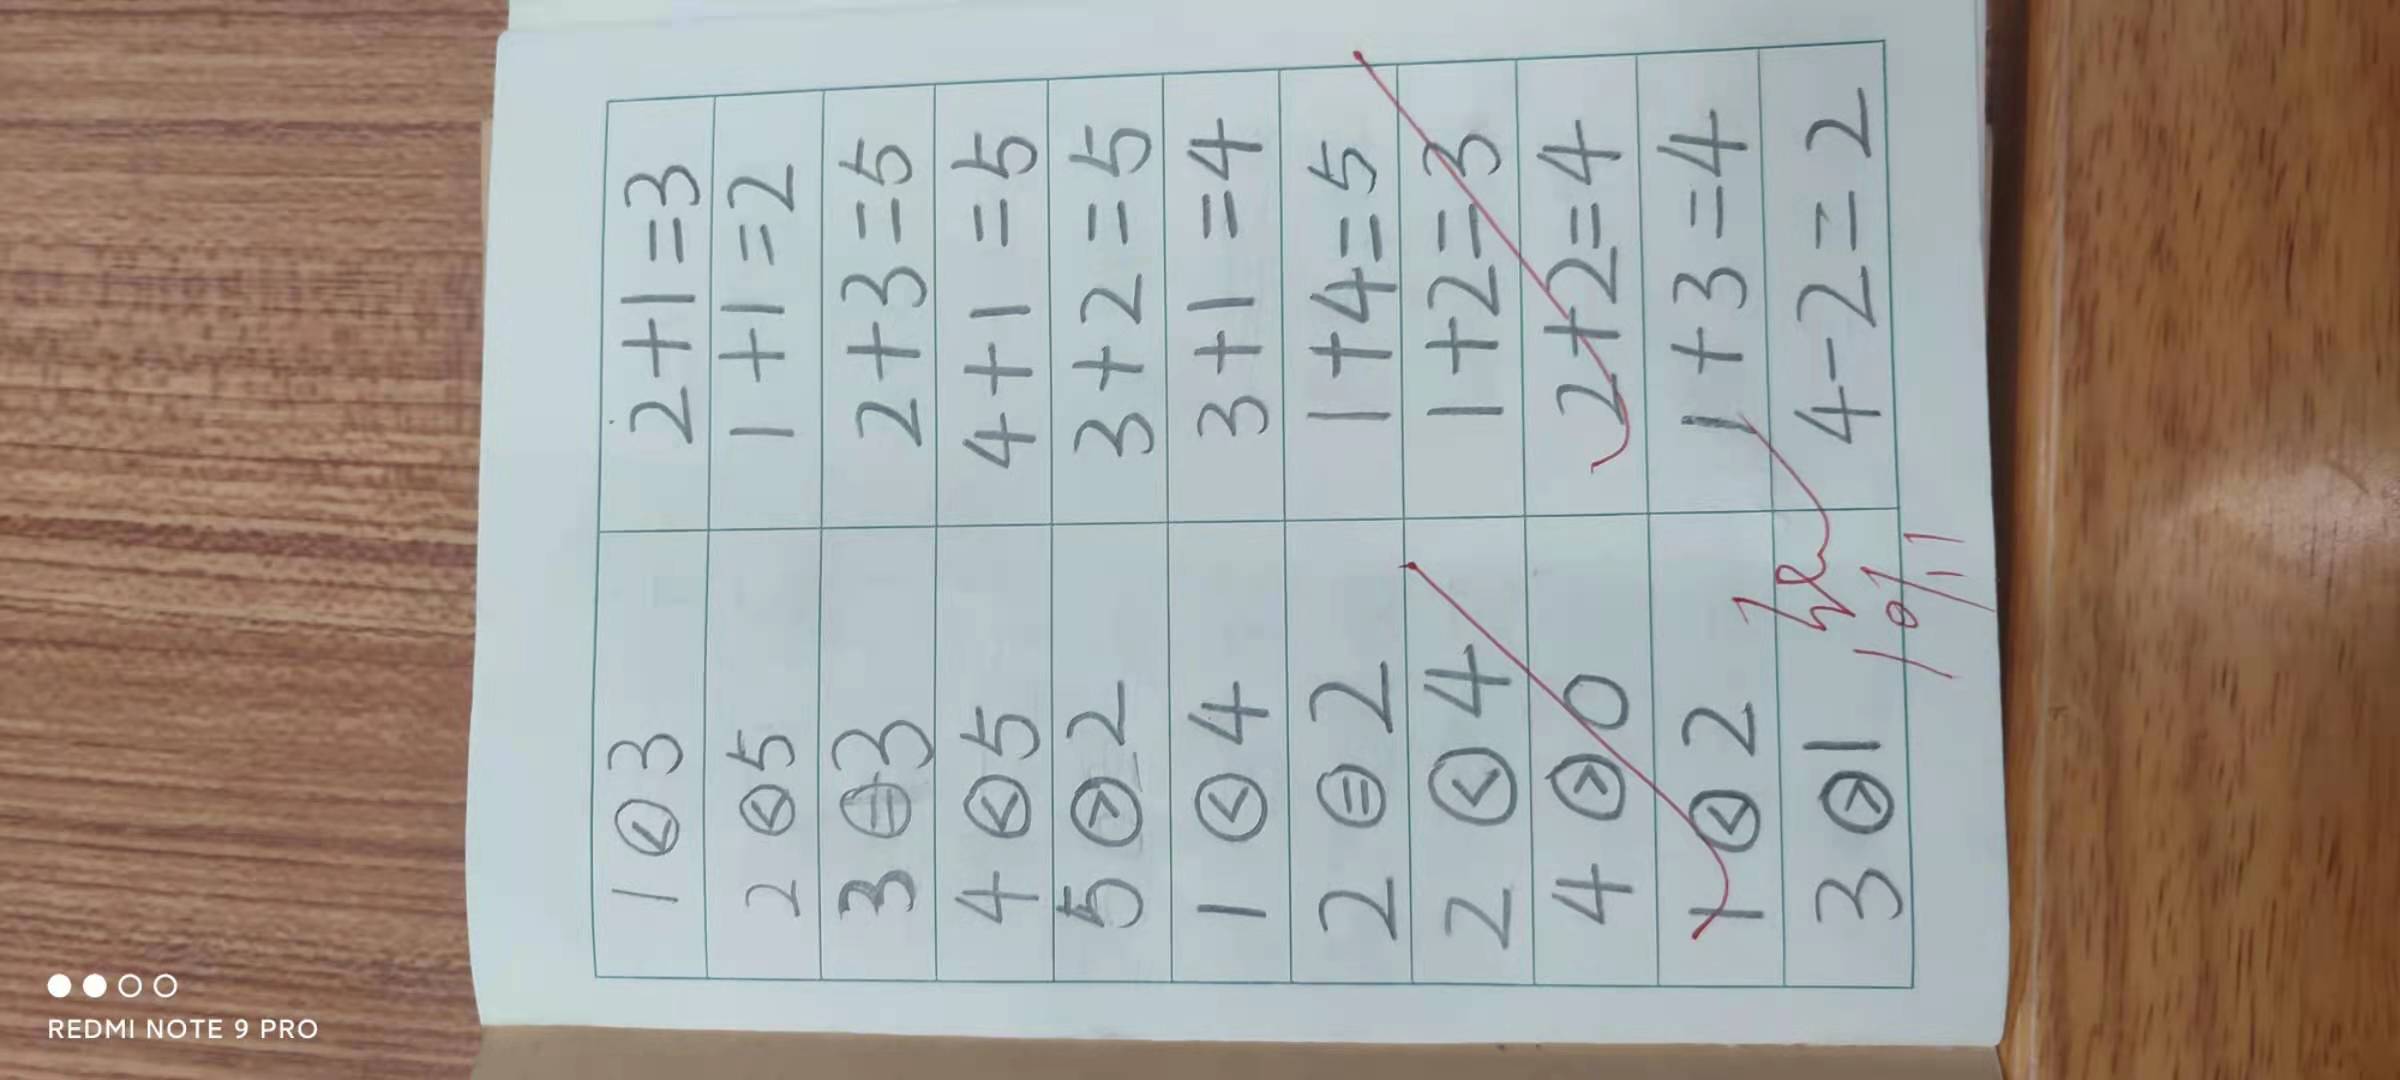 1 < 3 2+1=3
2 < 5 1+1=2
3 = 3 2+3=5
4 < 5 4+1=5
5 > 2 3+2=5
1 < 4 3+1=4
2 = 2 1+4=5
2 < 4 1+2=3
4 > 0 2+2=4
1 < 2 1+3=4
3 > 1 4-2=2
10/11
REDMI NOTE 9 PRO